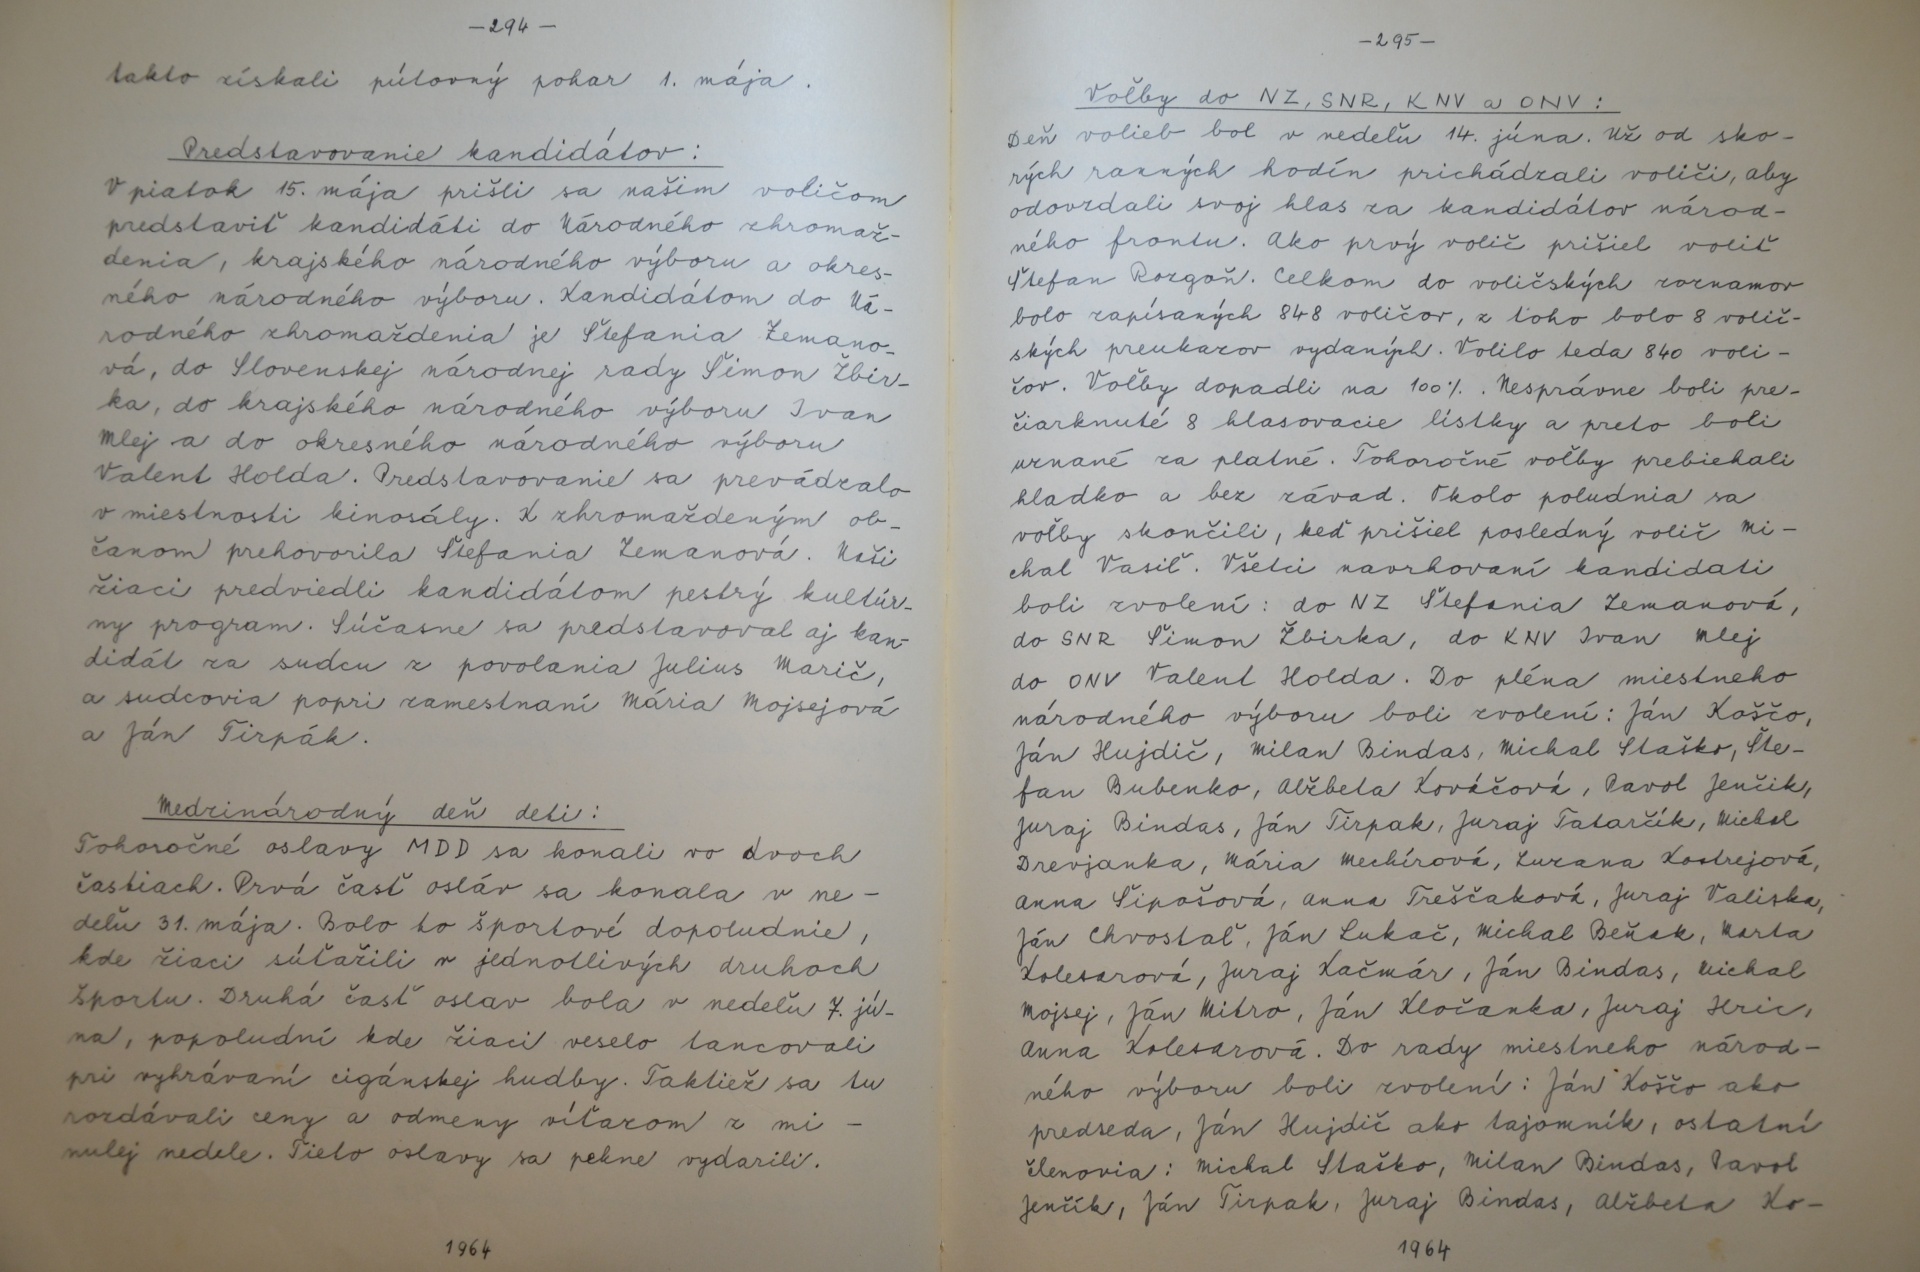 -294-
takto získali pútovný pohar 1. mája.
Predstavovanie kandidátov:
V piatok 15. mája prišli sa našim voličom
predstaviť kandidáti do Národného zhromaž-
denia, krajského národného výboru a okres-
ného národného výboru. Kandidátom do Ná-
rodného zhromaždenia je Štefania Zemano-
vá, do Slovenskej národnej rady Šimon Žbir-
ka, do krajského národného výboru Ivan
Mlej a do okresného národného výboru
Valent Holda. Predstavovanie sa prevádzalo
v miestnosti kinosály. K zhromaždeným ob-
čanom prehovorila Štefania Zemanová. Naši
žiaci predviedli kandidátom pestrý kultúr-
ny program. Súčasne sa predstavoval aj kan-
didát za sudcu z povolania Julius Marič,
a sudcovia popri zamestnaní Mária Mojsejová
a Ján Tirpák.
Medzinárodný deň deti:
Tohoročné oslavy MDD sa konali vo dvoch
častiach. Prvá časť osláv sa konala v ne-
deľu 31. mája. Bolo to športové dopoludnie,
kde žiaci súťažili v jednotlivých druhoch
športu. Druhá časť oslav bola v nedeľu 7. jú-
na, popoludní kde žiaci veselo tancovali
pri vyhrávaní cigánskej hudby. Taktiež sa tu
rozdávali ceny a odmeny víťazom z mi-
nulej nedele. Tieto oslavy sa pekne vydarili.
1964
-295-
Voľby do NZ, SNR, KNV a ONV:
Deň volieb bol v nedeľu 14. júna. Už od sko-
rých ranných hodín prichádzali voliči, aby
odovzdali svoj hlas za kandidátov národ-
ného frontu. Ako prvý volič prišiel voliť
Štefan Rozgoň. Celkom do voličských zoznamov
bolo zapísaných 848 voličov, z toho bolo 8 volič-
ských preukazov vydaných. Volilo teda 840 voli-
čov. Voľby dopadli na 100%. Nesprávne boli pre-
čiarknuté 8 hlasovacie lístky a preto boli
uznané za platné. Tohoročné voľby prebiehali
hladko a bez závad. Okolo poludnia sa
voľby skončili, keď prišiel posledný volič Mi-
chal Vasiľ. Všetci navrhovaní kandidati
boli zvolení: do NZ Štefania Zemanová,
do SNR Šimon Žbirka, do KNV Ivan Mlej
do ONV Valent Holda. Do pléna miestneho
národného výboru boli zvolení: Ján Koščo,
Ján Hujdič, Milan Bindas, Michal Staško, Šte-
fan Bubenko, Alžbeta Kováčová, Pavol Jenčik,
Juraj Bindas, Ján Tirpak, Juraj Tatarčík, Michal
Drevjanka, Mária Mechírová, Zuzana Kostrejová,
Anna Šipošová, Anna Treščaková, Juraj Valiska,
Ján Chvostaľ, Ján Lukač, Michal Beňak, Marta
Kolesarová, Juraj Kačmár, Ján Bindas, Michal
Mojsej, Ján Mitro, Ján Kločanka, Juraj Hric,
Anna Kolesarová. Do rady miestneho národ-
ného výboru boli zvolení: Ján Koščo ako
predseda, Ján Hujdič ako tajomník, ostatní
členovia: Michal Staško, Milan Bindas, Pavol
Jenčík, Ján Tirpak, Juraj Bindas, Alžbeta Ko-
1964